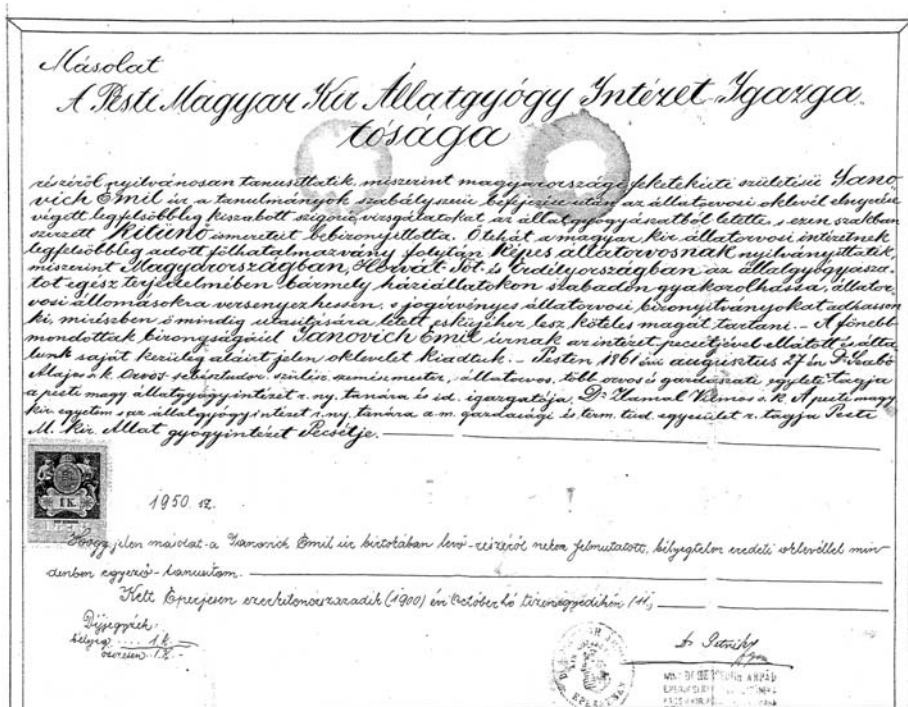 Másolat
A Pesti Magyar Kir Állatgyógy Intézet Igazga-
tósága
részéről nyilvánosan tanusittatik, miszerint magyarországi feketekúti születésü Jano-
vich Emil úr a tanulmányok szabályszerü befejezése után az állatorvosi oklevél elnyerése
végett legfelsöbbleg kiszabott szigorú vizsgálatokat az állatgyógyászatból letette, s ezen szakban
szerzett kitünö ismereteit bebizonyitotta. Ő tehát a magyar kir. állatorvosi intézetnek
legfelsöbbleg adott fölhatalmazvány folytán képes állatorvosnak nyilványittatik,
miszerint Magyarországban, Horvát Tót és Erdélyországban az állatgyógyásza-
tot egész terjedelmében bármely háziállatokon szabadon gyakorolhassa, állator-
vosi állomásokra versenyezhessen, s jogérvényes állatorvosi bizonyitványokat adhasson
ki, mirészben ö mindig utasitására letett esküjéhez lesz köteles magát tartani. – A fönebb
mondottak bizonyságáúl Janovich Emil úrnak az intézet pecsétjével ellátott és álta-
lunk saját kezüleg aláirt jelen oklevelet kiadtuk. – Pesten 1861 évi augusztus 27 én Dr Szabó
Alajos s. k. Orvos-sebésztudor, szülész, szemészmester, állatorvos, több orvosi és gazdászati egylet tagja
a pesti magy állatgyógyintézet r. ny. tanára és id. igazgatója, Dr Zlamal Vilmos s. k. A pesti magy
kir. egyetem s az állatgyógyintézet r. ny. tanára a m. gazdasági és term. tud. egyesület r. tagja Pesti
M. Kir. Állat gyógyintézet Pecsétje.
1 K
1950. sz.
Hogy jelen másolat a Janovich Emil úr birtokában levö – részéröl nekem felmutatott, bélyegtelen eredeti oklevéllel min-
denben egyezö – tanusitom.
Kelt Eperjesen ezerkilencszázadik (1900) évi October hó tizenegyedikén (11)
Dijjegyzék:
bélyeg .... 1 k.
összesen . 1 k. –